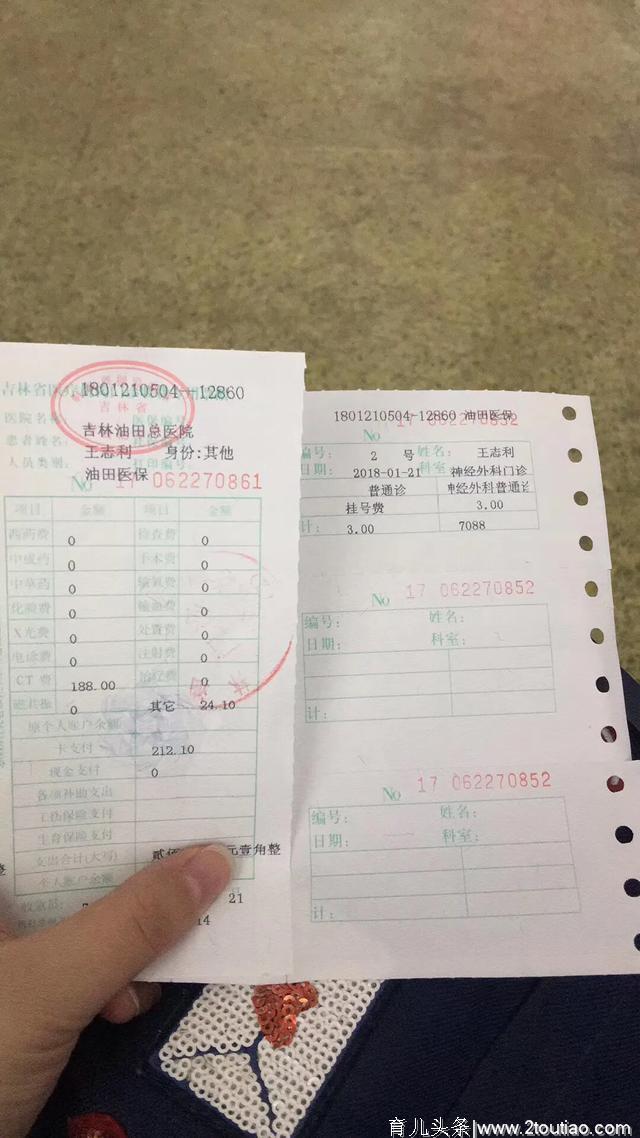 1801210504--12860
吉林省
医院名称
吉林油田总医院
患者姓名:
王志利 身份:其他
人员类别:
油田医保
No 17 062270861
项目 金额 项目 金额
西药费 0 检查费 0
中成药 0 手术费 0
中草药 0 输氧费 0
化验费 0 输血费 0
X光费 0 处置费 0
电诊费 0 注射费 0
CT费 188.00 治疗费 0
磁共振 0 其它 24.10
原个人账户余额
卡支付 212.10
现金支付 0
各项补助支出
工伤保险支付
生育保险支付
支出合计(大写) 贰佰 元壹角整
个人账户余额
收款员:
21
14
1801210504-12860 油田医保
No 17 062270852
编号: 2 号 姓名: 王志利
日期: 2018-01-21 科室 神经外科门诊
普通诊 神经外科普通诊
挂号费 3.00
计: 3.00 7088
No 17 062270852
编号: 姓名:
日期: 科室:
计:
No 17 062270852
编号: 姓名:
日期: 科室:
计:
育儿头条 www.2toutiao.com